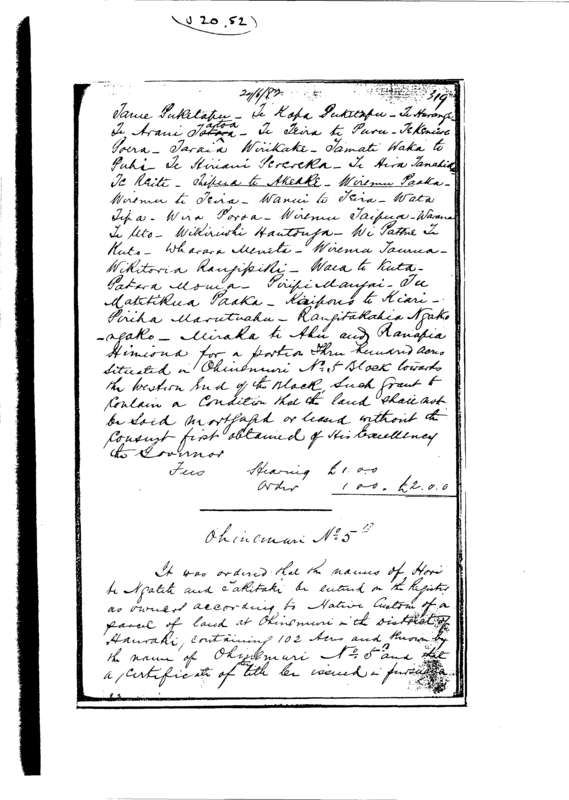 (J 20.52)
22/6/82 319
Tame Puketapu - Te Kopa Puketapu - Te Harangi
Te Arani Tatoa - Te Teira te Puru - Te Keniere
Poera - Taraia Wirikake - Tamati Waka te
Puhi Te Hiriani Pererika - Te Hira
Te Reiti - Tripua te Akeake - Wiremu Paaka -
Wiremu te Teira - Wanui te Teira - Wata
Tipa - Wira Poroa - Wiremu Taipua -
Te Uto - Wikiriwhi Hautonga - Wi Te
Kuto - Wharara Meneta - Wiremu Taurua -
Wikitoria Rangipiki - Waea te Kuta -
Patara - Piripi - Tu
Paaka - Kaipono te Kiari -
Piriha Marutuahu - Rangitakahia Ngako
-ngako - Miraka te Ahu and Ranapia
Himiona for a portion Three hundred acres
situated in Ohinemuri No. 5 Block towards
the Western End of the Block Such grant to
contain a Condition that the land shall not
be sold mortgaged or leased without the
Consent first obtained of His Excellency
the Governor
Fees Hearing £1.00
Order 1 00. £2.0.0
Ohinemuri No. 5 B
It was ordered that the names of Hori
te Ngatete and be entered on the Register
as owners according to Native Custom of a
parcel of land at Ohinemuri in the District of
Hauraki, containing 102 Acres and known by
the name of Ohinemuri No. 5 B and that
a certificate of title be issued in